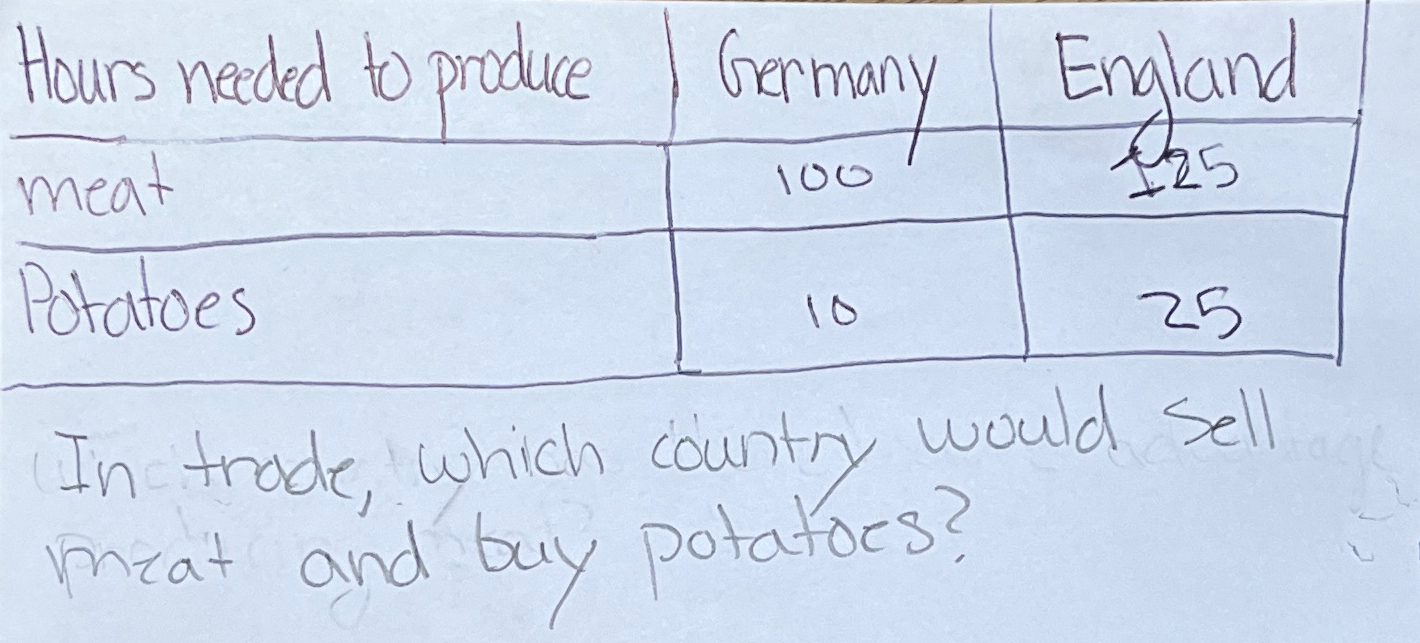 Hours needed to produce Germany England
meat 100 125
Potatoes 10 25
In trade, which country would sell
meat and buy potatoes?